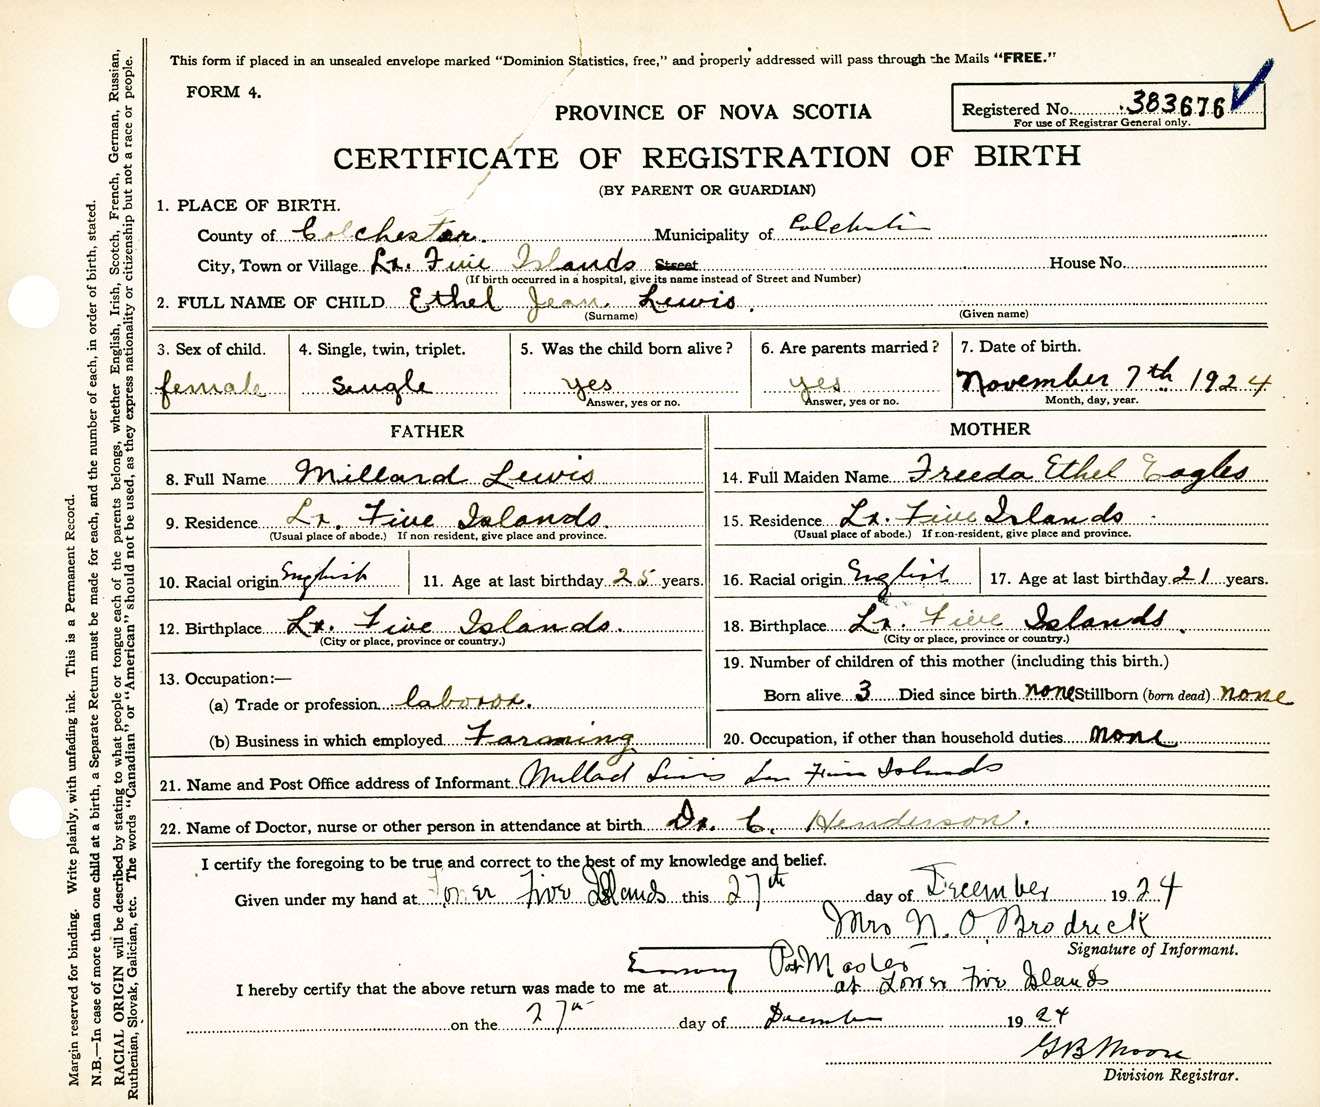 This form if placed in an unsealed envelope marked "Dominion Statistics, free," and properly addressed will pass through the Mails "FREE."
FORM 4.
PROVINCE OF NOVA SCOTIA
Registered No. 383676
For use of Registrar General only.
CERTIFICATE OF REGISTRATION OF BIRTH
(BY PARENT OR GUARDIAN)
1. PLACE OF BIRTH.
County of Colchester. Municipality of Colchester
City, Town or Village Lr. Five Islands Street House No.
(If birth occurred in a hospital, give its name instead of Street and Number)
2. FULL NAME OF CHILD Ethel Jean Lewis.
(Surname) (Given name)
3. Sex of child. 4. Single, twin, triplet. 5. Was the child born alive? 6. Are parents married? 7. Date of birth.
female Single yes yes November 7th 1924
Answer, yes or no. Answer, yes or no. Month, day, year.
FATHER MOTHER
8. Full Name Millard Lewis 14. Full Maiden Name Freeda Ethel Eagles
9. Residence Lr. Five Islands. 15. Residence Lr. Five Islands
(Usual place of abode.) If non-resident, give place and province. (Usual place of abode.) If non-resident, give place and province.
10. Racial origin English 11. Age at last birthday 25 years. 16. Racial origin English 17. Age at last birthday 21 years.
12. Birthplace Lr. Five Islands. 18. Birthplace Lr. Five Islands.
(City or place, province or country.) (City or place, province or country.)
19. Number of children of this mother (including this birth.)
13. Occupation:—
(a) Trade or profession laboror. Born alive 3 Died since birth none Stillborn (born dead) none
(b) Business in which employed Farming 20. Occupation, if other than household duties none
21. Name and Post Office address of Informant Millad Lewis Lr Five Islands
22. Name of Doctor, nurse or other person in attendance at birth Dr. C. Henderson.
I certify the foregoing to be true and correct to the best of my knowledge and belief.
Given under my hand at Lower Five Islands this 27th day of December 1924
Mrs N. O. Brodrick
Signature of Informant.
Post Master
I hereby certify that the above return was made to me at at Lower Five Islands
on the 27th day of December 1924
G B Moore
Division Registrar.
Margin reserved for binding. Write plainly, with unfading ink. This is a Permanent Record.
N.B.—In case of more than one child at a birth, a Separate Return must be made for each, and the number of each, in order of birth, stated.
RACIAL ORIGIN will be described by stating to what people or tongue each of the parents belongs, whether English, Irish, Scotch, French, German, Russian,
Ruthenian, Slovak, Galician, etc. The words "Canadian" or "American" should not be used, as they express nationality or citizenship but not a race or people.